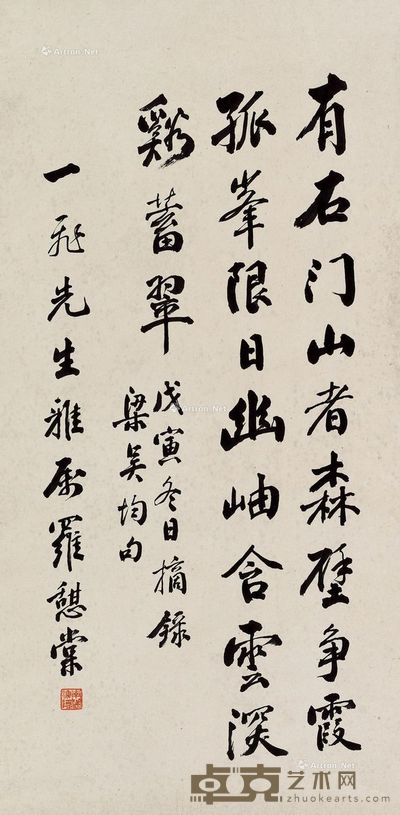 有石门山者森壁争霞
孤峯限日幽岫含雲深
谿蓄翠
戊寅冬日摘録
梁吴均句
一飛先生雅属羅憩棠
Artron.Net
卓克艺术网
zhuokearts.com